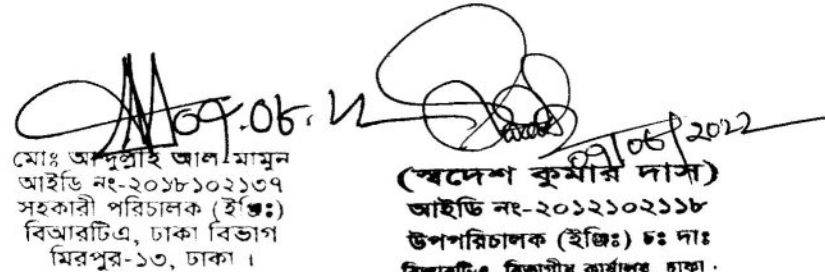 ০৭.০৬.২২
মোঃ আব্দুল্লাহ আল মামুন
আইডি নং-২০১৮১০২১৩৭
সহকারী পরিচালক (ইঞ্জিঃ)
বিআরটিএ, ঢাকা বিভাগ
মিরপুর-১৩, ঢাকা ।
07/06/2022
(স্বদেশ কুমার দাস)
আইডি নং-২০১২১০২১১৮
উপপরিচালক (ইঞ্জিঃ) চঃ দাঃ
বিআরটিএ, বিভাগীয় কার্যালয়, ঢাকা।